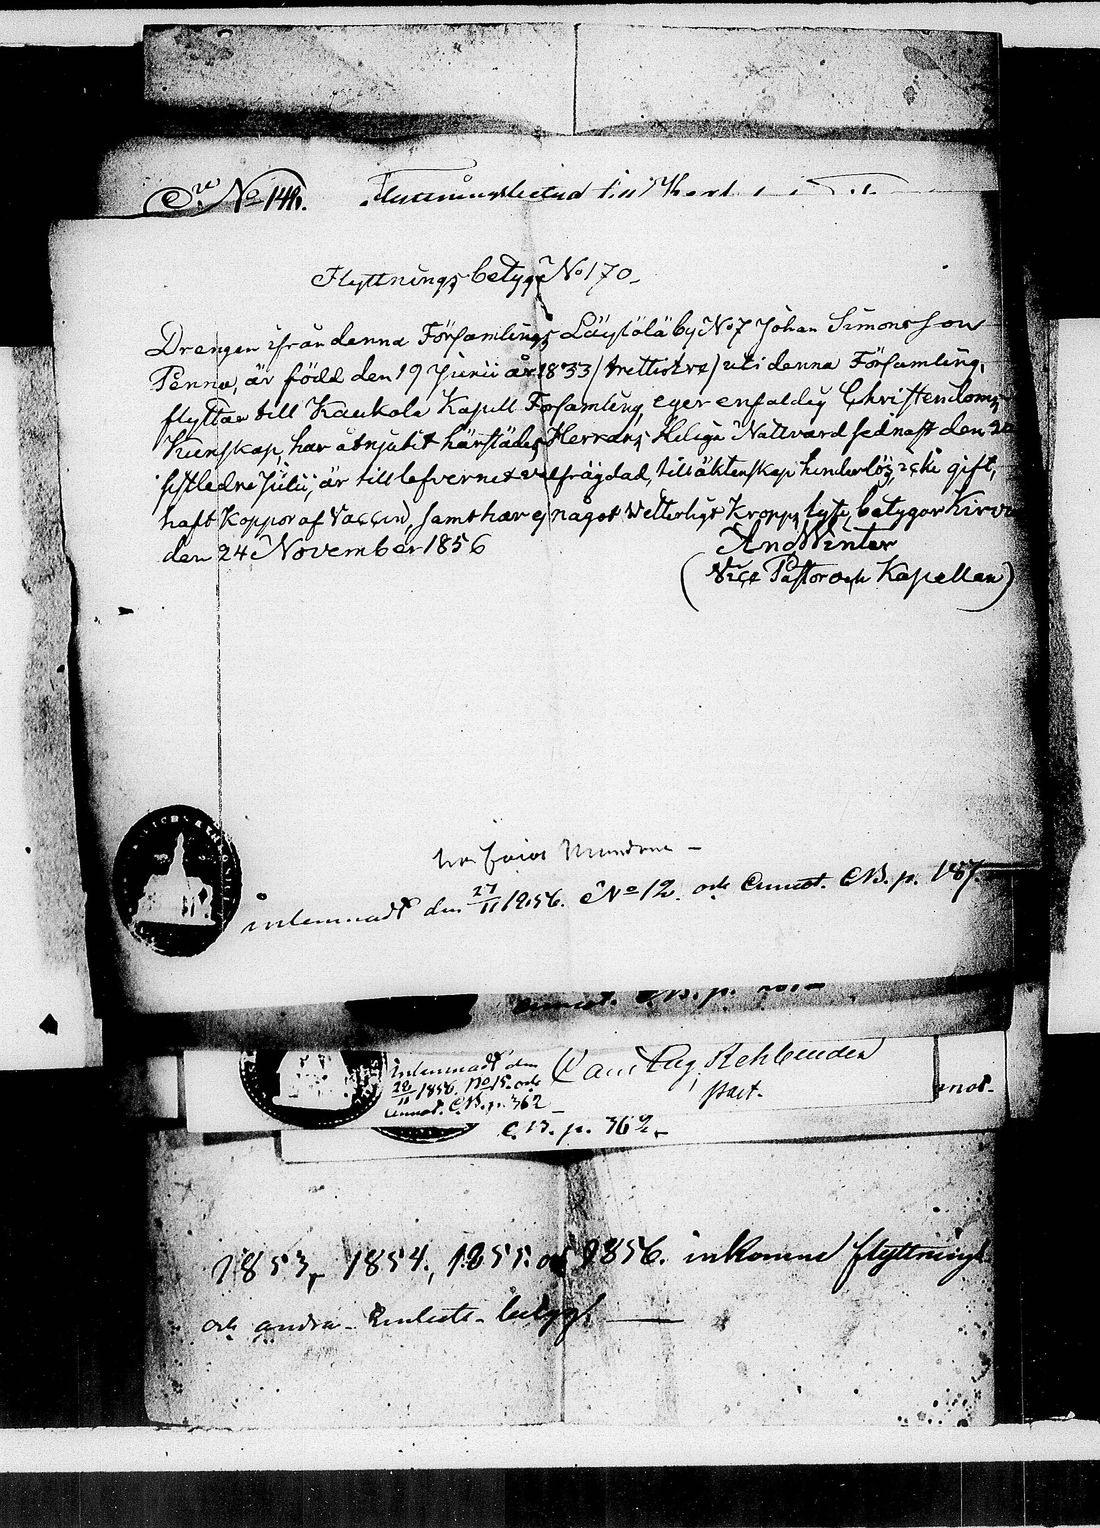 No 141.
Flyttningsbetyg No 170.
Drengen ifrån denna Församlings Läystölä by No 7 Johan Simonsson
Penna, är född den 19 Junii år 1833 /trettiotre/ uti denna Församling,
flyttar till Kaukola Kapell Församling, eger enfaldig Christendoms
Kunskap, har åtnjutit härstädes Herrans Heliga Nattvard sednast den
sistledne Julii, är till lefvernet välfrägdad, till äktenskap hinderlös, icke gift,
haft Koppor af Vaccin, samt har ej något Vetterligt Kropps lyte, betygar Kirvu
den 24 November 1856
And Winter
(Vice Pastor och Kapellan)
inlemnadt den 27/11 1856. No 12. och Annot. C.B. p. 187.
Annot. C.B. p.
Inlemnadt den
28/11 1856. No 15. och
Annot. C.B. p. 362
Rehbinder
past.
C.B. p. 362
1853, 1854, 1855 och 1856. inkomne flyttnings
och andra Embets betyg